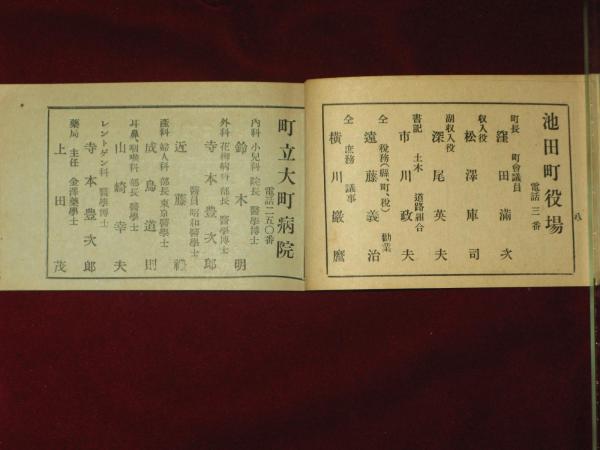 八
池田町役場
電話 三番
町長 町會議員
窪田滿次
収入役
松澤庫司
副収入役
深尾英夫
書記 土木 道路組合
市川政夫
仝 稅務(縣、町、稅) 勸業
遠藤義治
仝 庶務 議事
橫川嚴麿
町立大町病院
電話二五〇番
內科 小兒科 院長 醫學博士
鈴木明
外科 花柳病科 部長 醫學博士
寺本豊次郎
醫員 昭和醫學士
近藤
產科 婦人科 部長 東京醫學士
成鳥道則
耳鼻、咽喉科 部長 醫學士
山崎幸夫
レントゲン科 醫學博士
寺本豊次郎
藥局 主任 金澤藥學士
上田茂